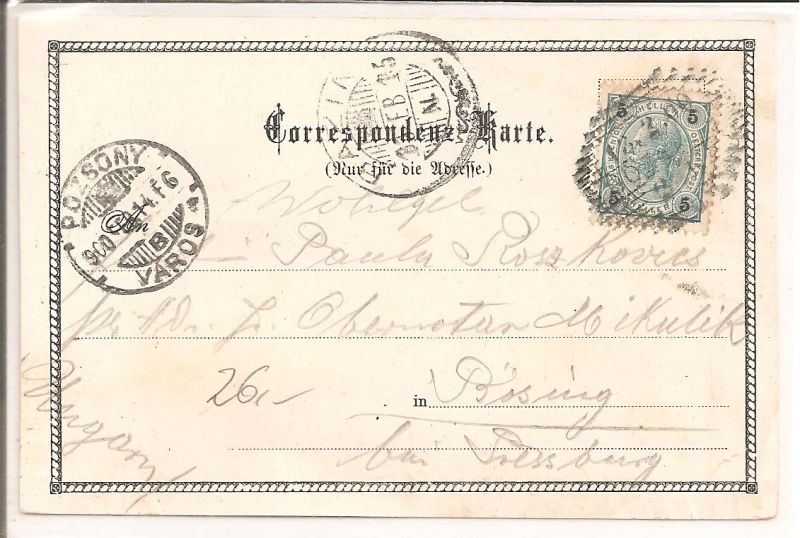 Correspondenz-Karte.
(Nur für die Adresse.)
An
Wohlgeb
Paula Roszkovics
pr. Adr. J. Obernotär Mikulik
26,-
in Bösing
bei Pressburg
Ungarn
POZSONY
900 14. F6
B
VÁROS
FEB 15
M.
5 5
HELLER
5 5